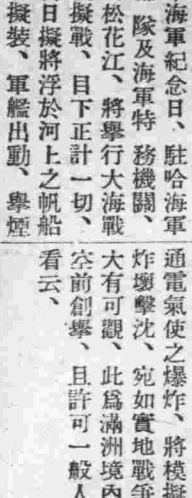 海軍紀念日、駐哈海軍
隊及海軍特務機關、
松花江、將舉行大海戰
擬戰、目下正計一切、
日擬將浮於河上之帆船
擬裝、軍艦出動、舉煙
通電氣使之爆炸、將模擬
炸壞擊沈、宛如實地戰爭
大有可觀、此爲滿洲境內
空前創舉、且許可一般人
看云、